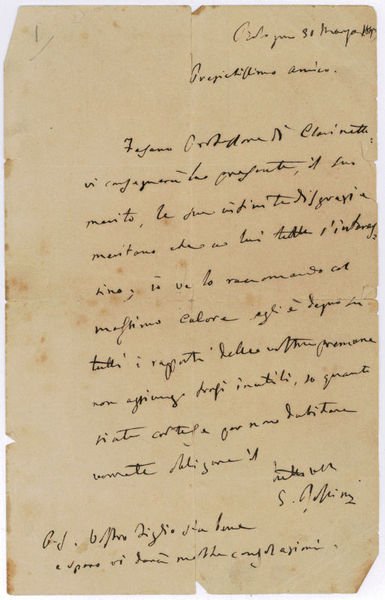 1
Bologna 31 Marzo
Pregiatissimo amico.
Fasano Professore di Clarinetto
vi consegnerà la presente, il suo
merito, le sue infinite disgrazie
meritano che a lui s'interes
sino; io ve lo raccomando col
massimo calore egli è degno in
tutti i rapporti della vostra premura
non aggiungo inutili, so quanto
siate cortese per non dubitare
vorrete obligare il
tutto vostro
G. Rossini
P.S. Vostro Figlio sta bene
e spero vi darà molte consolazioni.